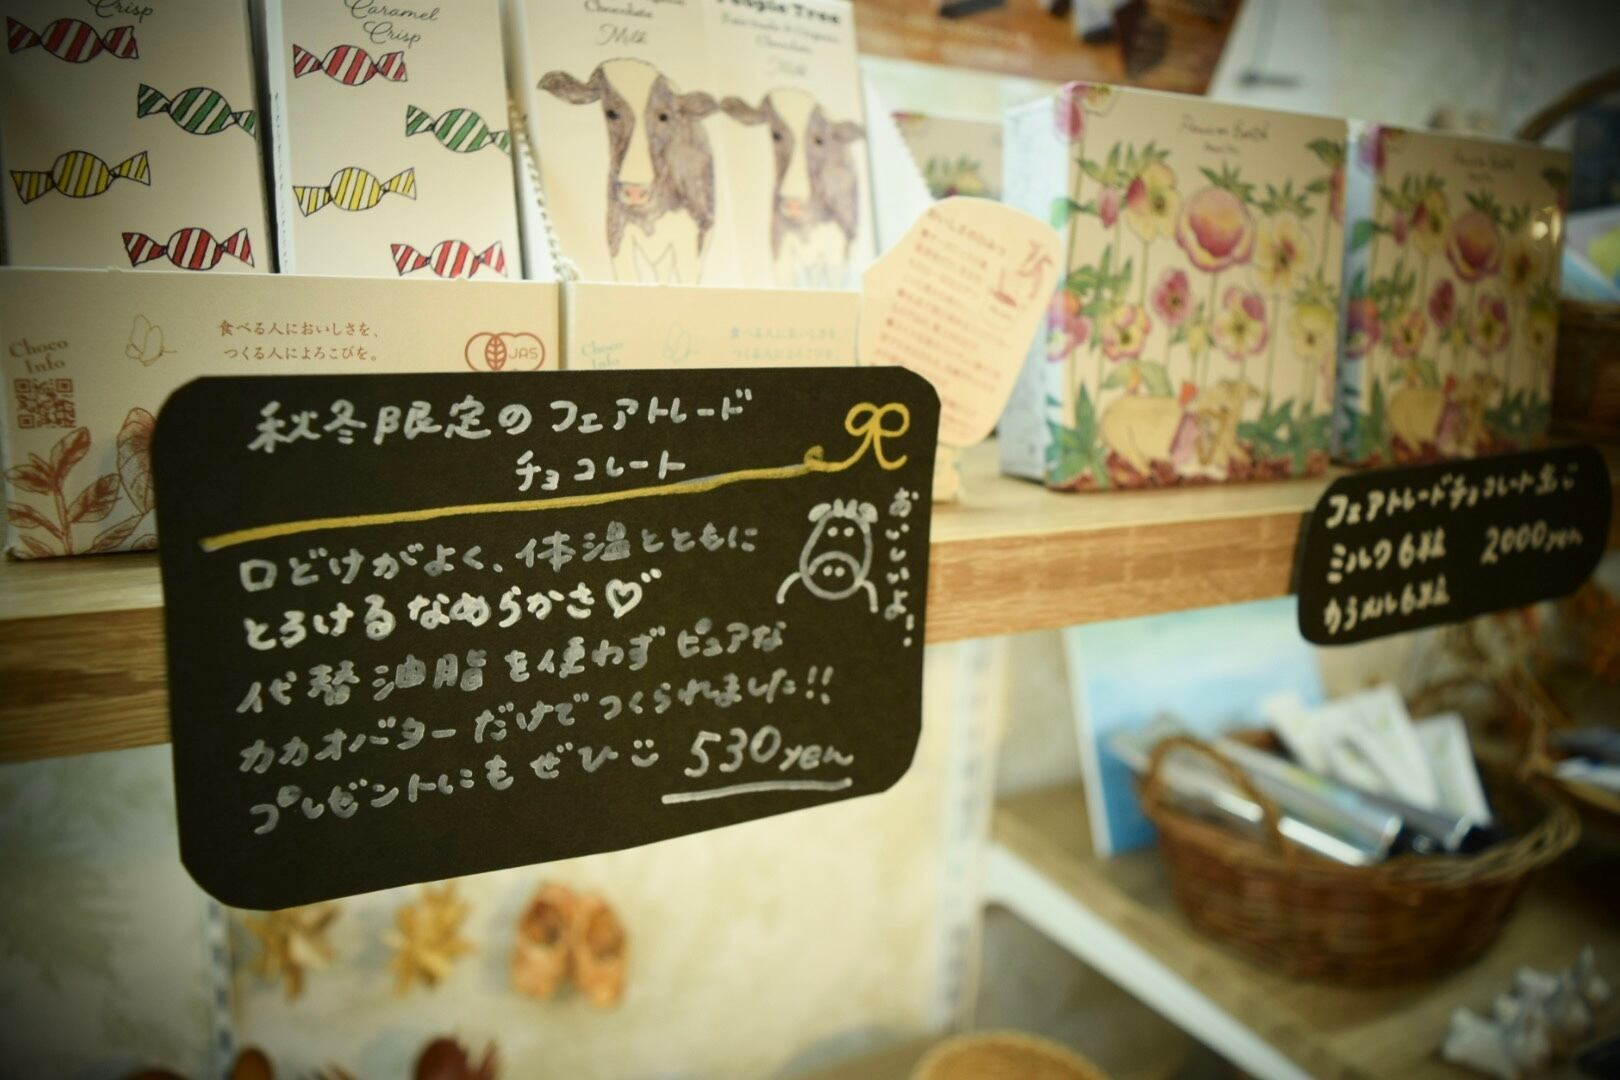 Crisp
Caramel
Crisp
Chocolate
Milk
People Tree
Chocolate
Milk
Choco
Info
食べる人においしさを、
つくる人によろこびを。
JAS
Choco
Info
食べる人においしさを、
つくる人によろこびを。
秋冬限定のフェアトレード
チョコレート
口どけがよく、体温とともに
とろけるなめらかさ♡
代替油脂を使わずピュアな
カカオバターだけでつくられました!!
プレゼントにもぜひ 530yen
おいしいよ!
フェアトレードチョコレート
ミルク6粒 2000yen
カラメル6粒